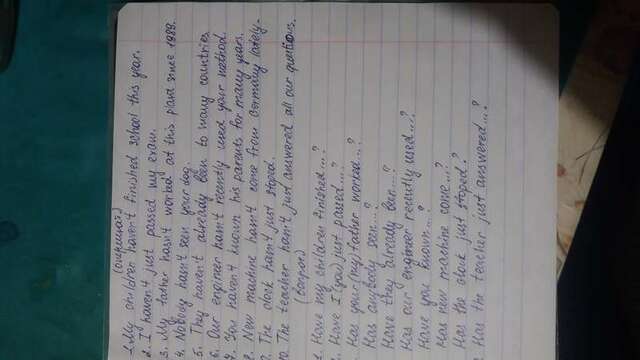 (отрицат)
1. My children haven't finished school this year.
2. I haven't just passed my exam.
3. My father hasn't worked at this plant since 1989.
4. Nobody hasn't seen your dog.
5. They haven't already been to many countries
6. Our engineer hasn't recently used your method.
7. You haven't known his parents for many years.
8. New machine hasn't come from Germany lately.
9. The clock hasn't just stoped.
10. The teacher hasn't just answered all our questions.
(Вопрос)
1. Have my children finished...?
2. Have I (you) just passed...?
Has your (my) father worked...?
Has anybody seen...?
Have they already been...?
Has our engineer recently used...?
Have you known...?
Has new machine come...?
Has the clock just stoped?
Has the teacher just answered...?